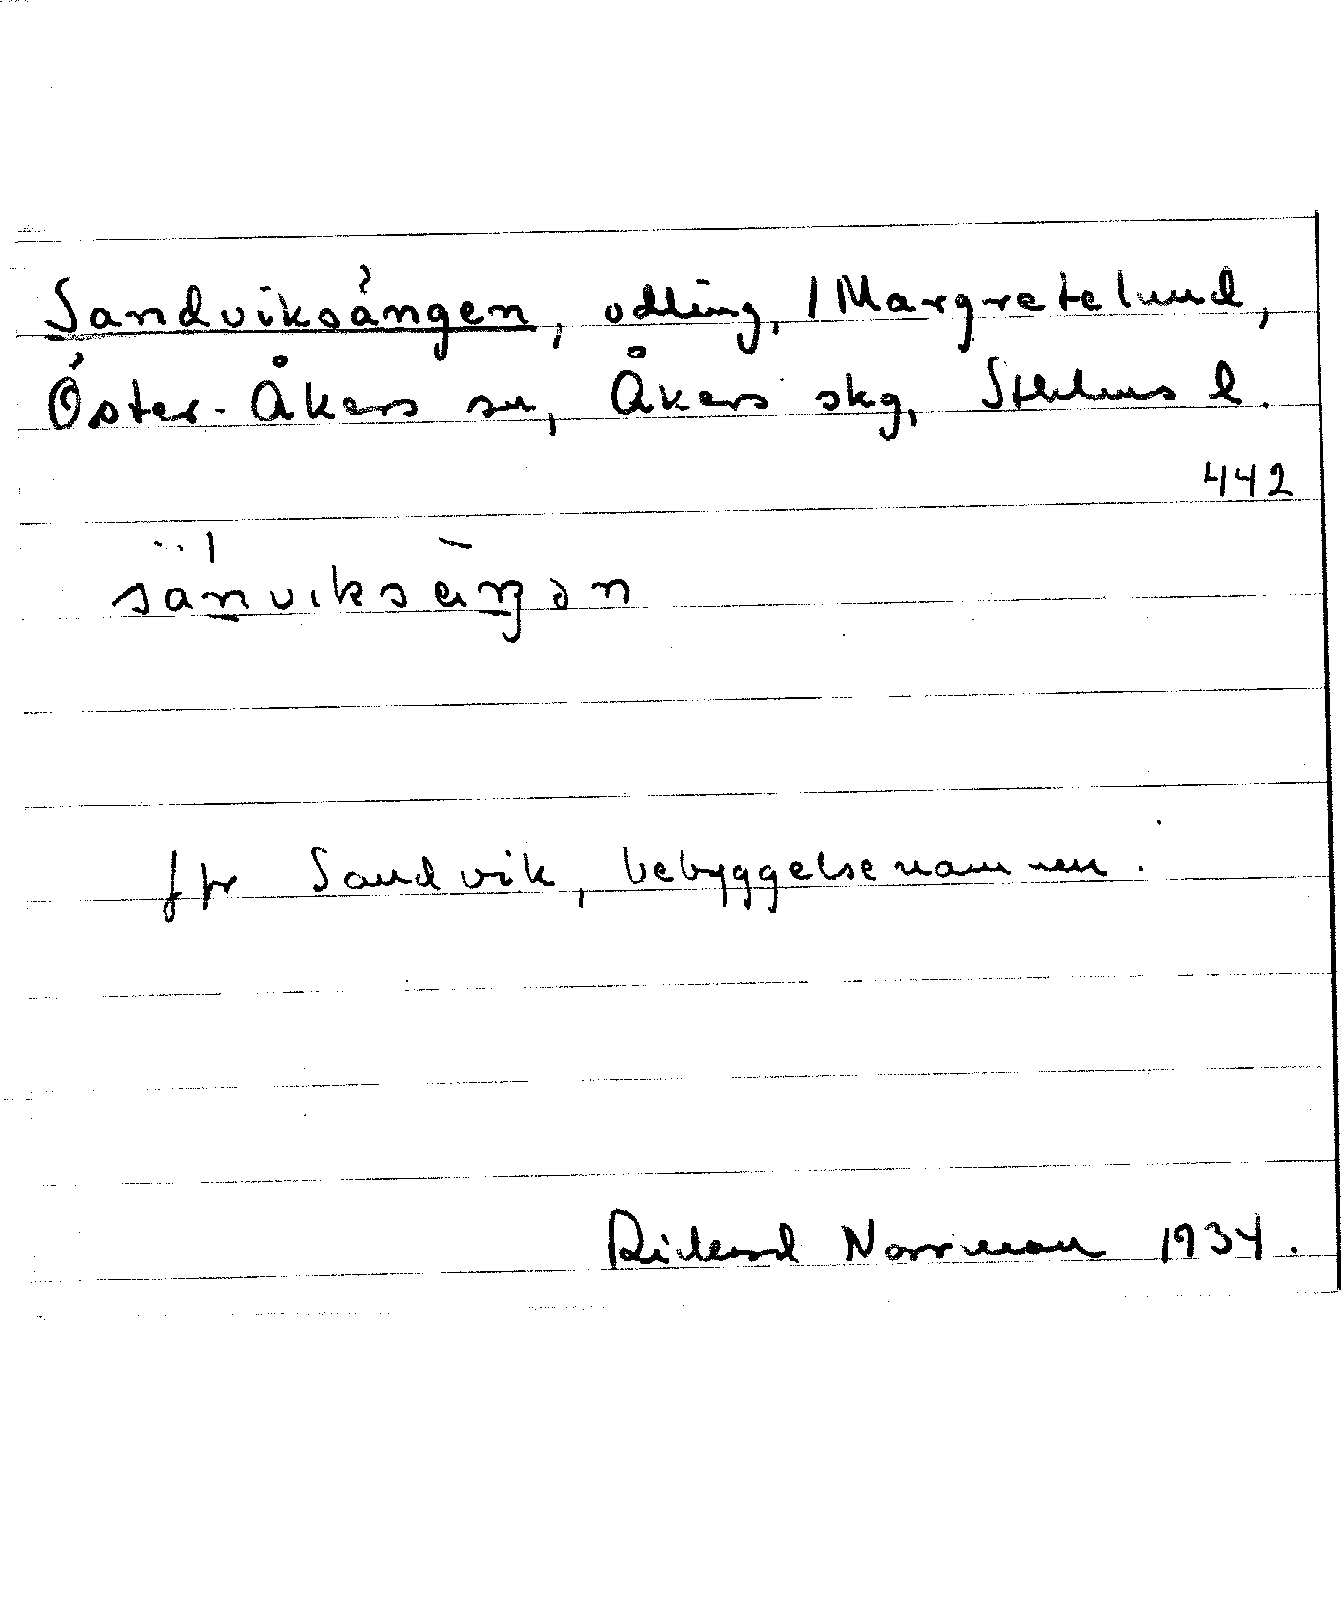 Sandviksängen, odling, / Margretelund,
Öster-Åkers sn, Åkers skg, Sthlms l.
442
sanviksäŋən
jfr Sandvik, bebyggelsenamnen.
Rickard Norrman 1934.